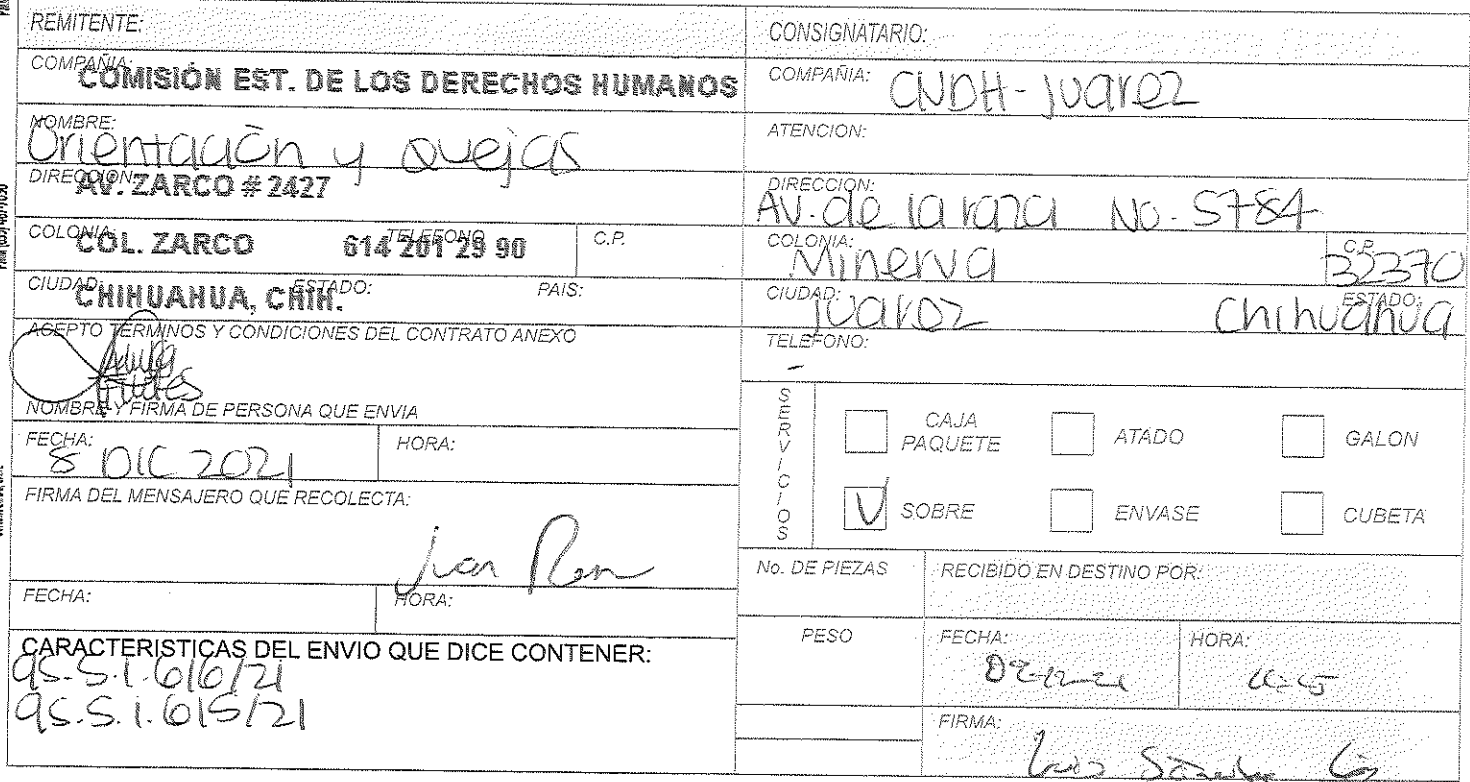 REMITENTE:
COMPAÑIA: COMISIÓN EST. DE LOS DERECHOS HUMANOS
NOMBRE: Orientación y quejas
DIRECCION: AV. ZARCO # 2427
COLONIA: COL. ZARCO TELEFONO 614 201 29 90 C.P.
CIUDAD: CHIHUAHUA, CHIH. ESTADO: PAIS:
ACEPTO TERMINOS Y CONDICIONES DEL CONTRATO ANEXO
NOMBRE Y FIRMA DE PERSONA QUE ENVIA
FECHA: 8 DIC 2021 HORA:
FIRMA DEL MENSAJERO QUE RECOLECTA:
Juan
FECHA: HORA:
CARACTERISTICAS DEL ENVIO QUE DICE CONTENER:
qs.S.1.616/21
qs.S.1.615/21
CONSIGNATARIO:
COMPAÑIA: CNDH-Juarez
ATENCION:
DIRECCION: AV. de la raza No. 5784
COLONIA: Minerva C.P. 32370
CIUDAD: Juarez ESTADO: Chihuahua
TELEFONO: -
SERVICIOS
CAJA PAQUETE ATADO GALON
SOBRE ENVASE CUBETA
No. DE PIEZAS RECIBIDO EN DESTINO POR:
PESO FECHA: HORA:
FIRMA: